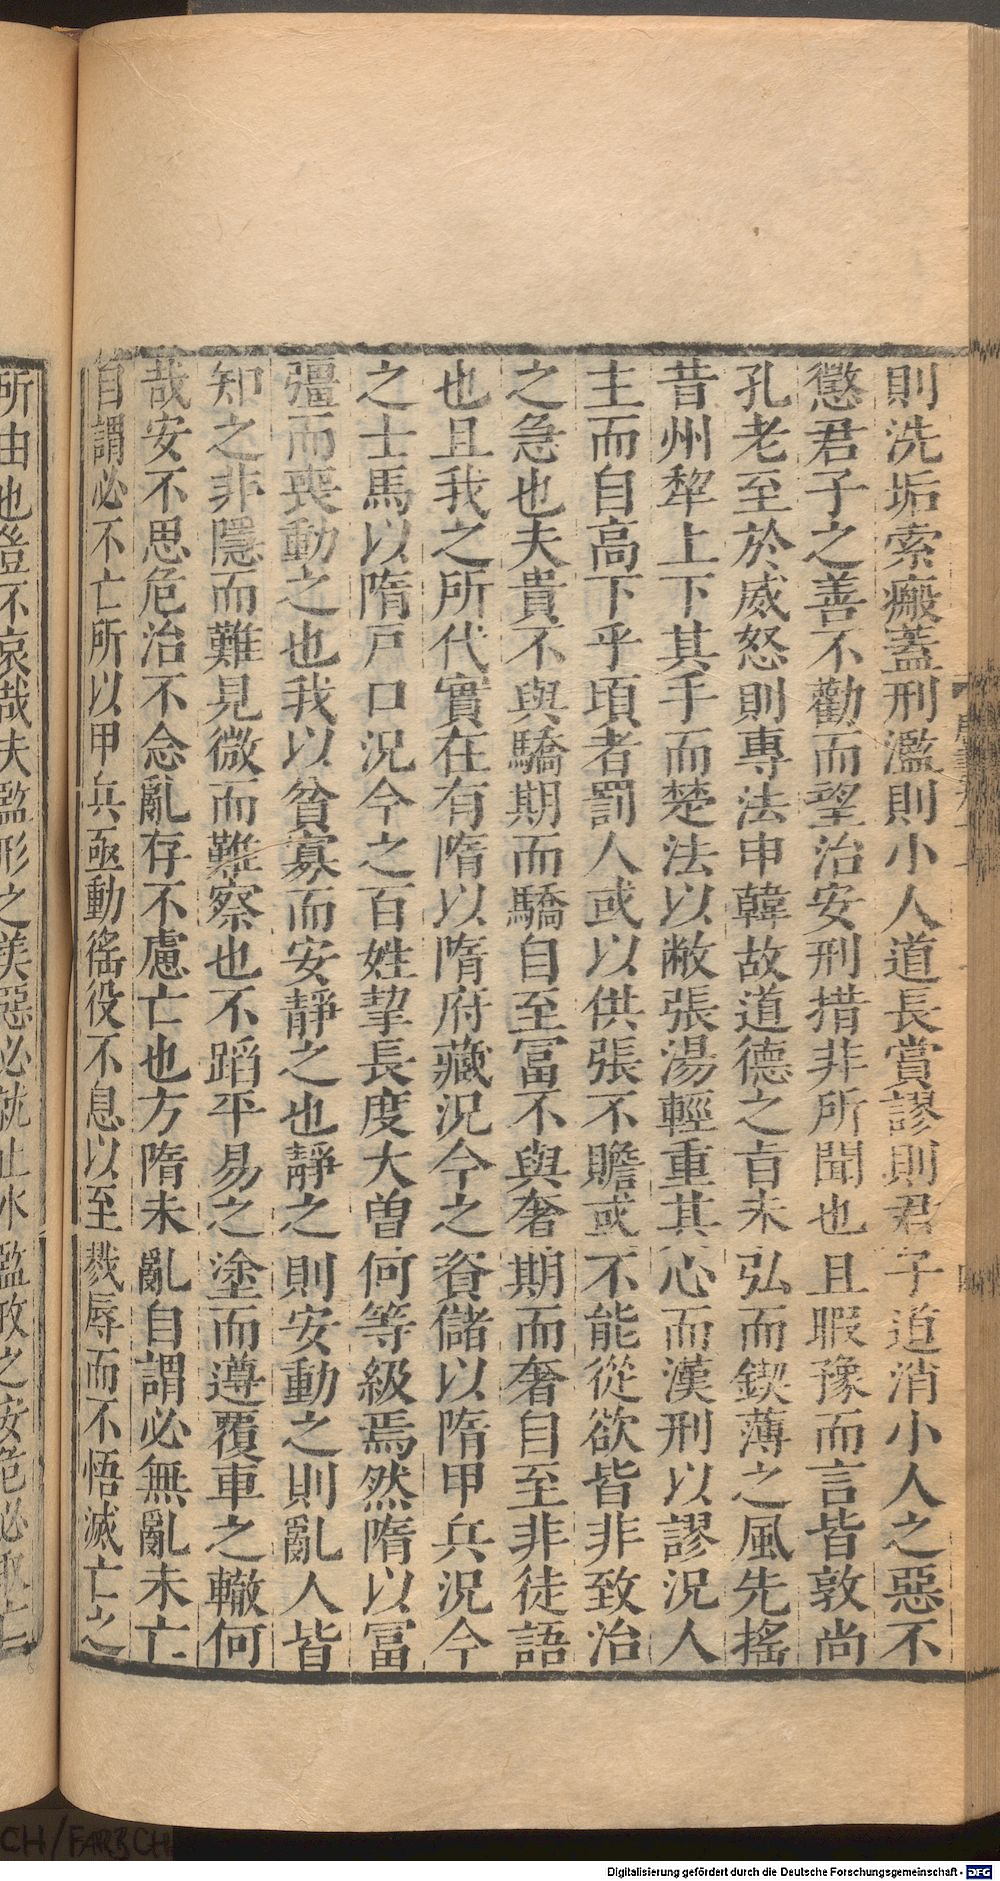 則洗垢索瘢蓋刑濫則小人道長賞謬則君子道消小人之惡不
懲君子之善不勸而望治安刑措非所聞也且暇豫而言皆敦尚
孔老至於威怒則專法申韓故道德之㫖未弘而鍥薄之風先搖
昔州犂上下其手而楚法以敝張湯輕重其心而漢刑以謬況人
主而自高下乎頃者罰人或以供張不贍或不能從欲皆非致治
之急也夫貴不與驕期而驕自至冨不與奢期而奢自至非徒語
也且我之所代實在有隋以隋府藏況今之資儲以隋甲兵況今
之士馬以隋戸口況今之百姓挈長度大曽何等級焉然隋以冨
彊而喪動之也我以貧寡而安靜之也靜之則安動之則亂人皆
知之非隱而難見微而難察也不蹈平易之塗而遵覆車之轍何
哉安不思危治不念亂存不慮亡也方隋未亂自謂必無亂未亡
自謂必不亡所以甲兵亟動徭役不息以至戮辱而不悟滅亡之
所由也豈不哀哉夫濫形之美惡必就止水濫政之安危必取亡
CH/FARBCH
Digitalisierung gefördert durch die Deutsche Forschungsgemeinschaft - DFG